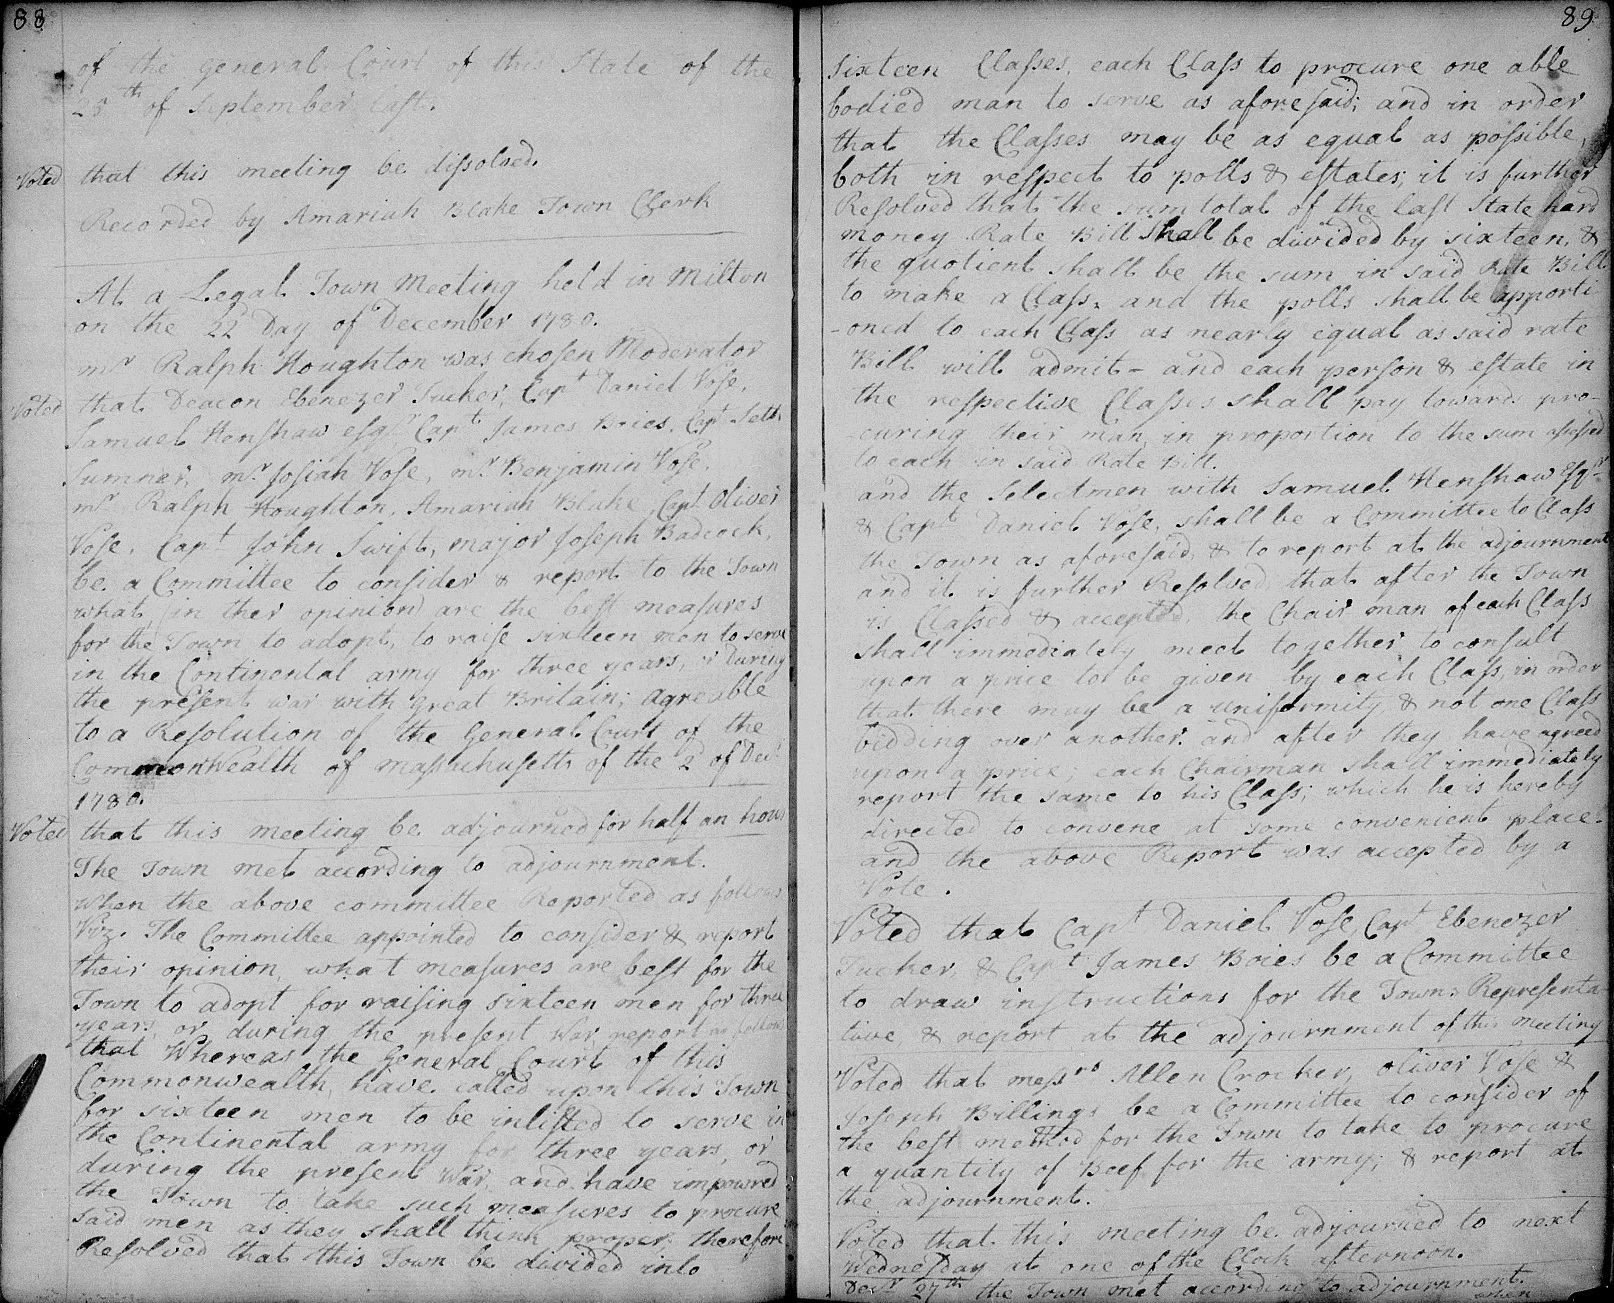 88
of the general Court of this State of the
25th of September last.
Voted that this meeting be dissolved.
Recorded by Amariah Blake Town Clerk
At a Legal Town Meeting held in Milton
on the 22 Day of December 1780.
mr Ralph Houghton was chosen Moderator
Voted that Deacon Ebenezer Tucker, Capt Daniel Vose,
Samuel Henshaw esqr Capt James Boies, Capt Seth
Sumner, mr Josiah Vose, mr Benjamin Vose,
mr Ralph Houghton, Amariah Blake, Capt Oliver
Vose, Capt John Swift, major Joseph Badcock,
be a Committee to consider & report to the Town
what (in ther opinion) are the best measures
for the Town to adopt, to raise sixteen men to serve
in the Continental army for three years, or During
the present war with Great Britain; agreable
to a Resolution of the General Court of the
CommonWealth of massachusetts of the 2 of Decr
1780.
Voted that this meeting be adjourned for half an hour
The Town met according to adjournment.
when the above committee Reported as follows
Viz. The Committee appointed to consider & report
their opinion, what measures are best for the
Town to adopt for raising sixteen men for three
years, or during the present war, report as follows
that Whereas the General Court of this
Commonwealth have called upon this Town
for sixteen men to be inlisted to serve in
the Continental army for three years, or
during the present war, and have impowred
the Town to take such measures to procure
said men as they shall think proper, therefore
Resolved that this Town be divided into
89
sixteen Classes, each Class to procure one able
bodied man to serve as aforesaid; and in order
that the Classes may be as equal as possible,
both in respect to polls & estates; it is further
Resolved that the sum total of the last State hard
money Rate Bill Shall be divided by sixteen, &
the quotient shall be the sum in said Rate Bill
to make a Class, and the polls shall be apporti
-oned to each Class as nearly equal as said rate
Bill will admit - and each person & estate in
the respective Classes shall pay towards pro-
-curing their man, in proportion to the sum assessed
to each in said Rate Bill.
and the Selectmen with Samuel Henshaw Esqr
& Capt Daniel Vose, shall be a Committee to Class
the Town as aforesaid, & to report at the adjournment
and it is further Resolved that after the Town
is Classed & accepted, the Chair man of each Class
shall immediately meet together to consult
upon a price to be given by each Class, in order
that there may be a uniformity & not one Class
bidding over another. and after they have agreed
upon a price, each Chairman shall immediately
report the same to his Class; which he is hereby
directed to convene at some convenient place.
and the above Report was accepted by a
Vote.
Voted that Capt Daniel Vose, Capt Ebenezer
Tucker, & Capt James Boies be a Committee
to draw instructions for the Towns Representa
tive & report at the adjournment of this meeting
Voted that messrs Allen Crocker, Oliver Vose &
Joseph Billings be a Committee to consider of
the best method for the Town to take to procure
a quantity of Beef for the army; & report at
the adjournment.
Voted that this meeting be adjourned to next
Wednesday at one of the Clock afternoon.
Decr 27th the Town met according to adjournment.
when